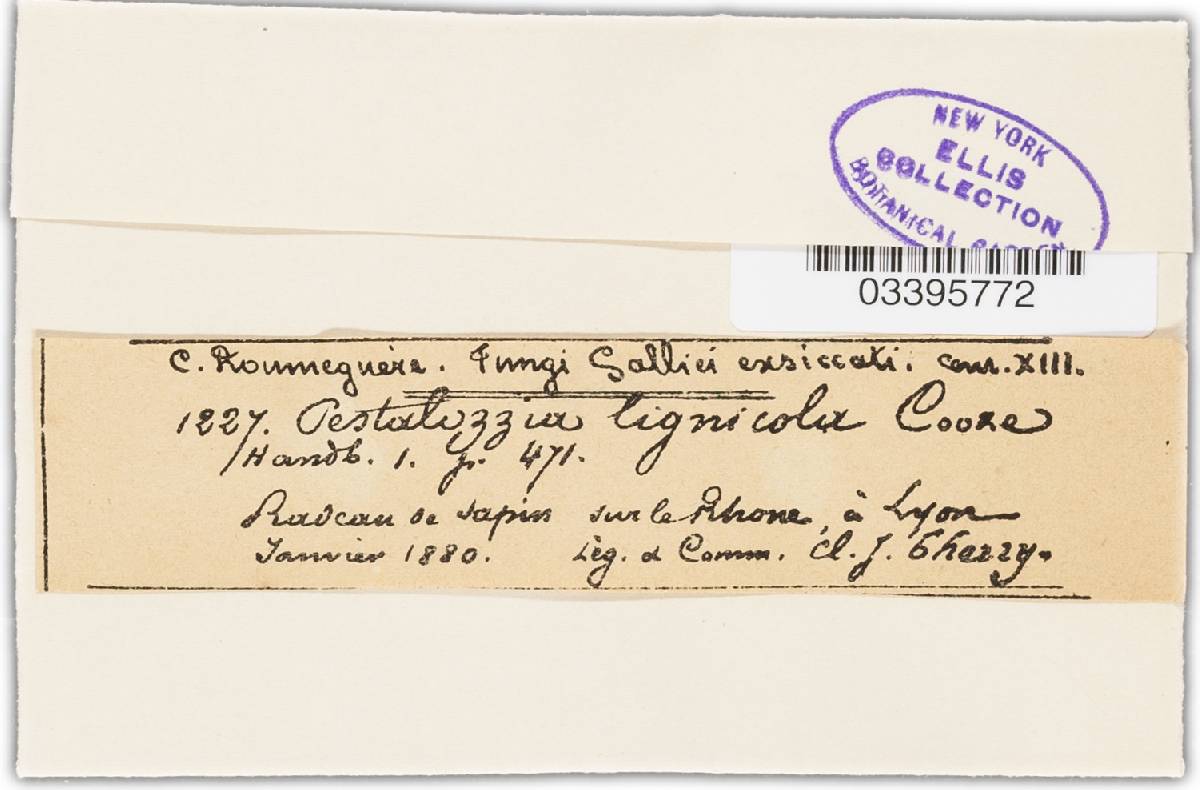 NEW YORK
ELLIS
COLLECTION
BOTANICAL GARDEN
03395772
C. Roumeguère. Fungi Gallici exsiccati. cent. XIII.
1227. Pestalozzia lignicola Cooke
Handb. 1. p. 471.
Radeau de sapin sur le Rhone, à Lyon
Janvier 1880. Lèg. & Comm. Cl. J. Therry.